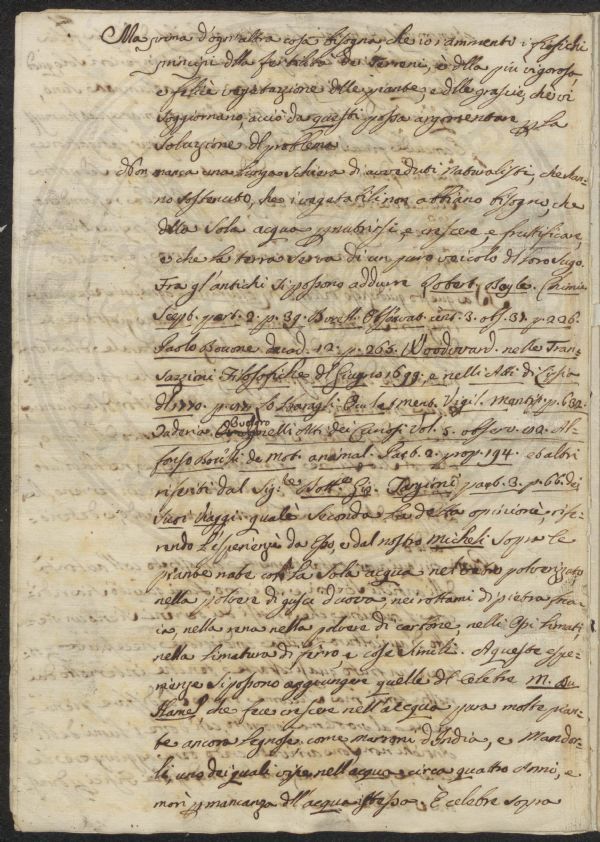 Ma prima d'ogni altra cosa bisogna, che io rammenti i fisichi
principj della fertilità dei Terreni, e della più vigorosa,
e felice vegetazione delle piante, e delle grascie, che vi
soggiornano, acciò da questi possa argomentare la
soluzione del problema
Non manca una lunga schiera di avveduti Naturalisti, che han-
no sostenuto, che i vegetabili non abbiano bisogno, che
della sola acqua nutrirsi, e crescere, e fruttificare,
e che la terra serva di un puro veicolo del loro sugo.
Fra gl'antichi si possono addurre Robert. Boyle. Chimis.
Scept. part. 2. p. 39. Observat. cent. 3. obs. 37. p. 226.
Paolo Boccone decad. 12. p. 265. Woodward. nelle Tran-
sazzioni Filosofiche del Giugno 1699, e nelli Atti di
del p. Lo Baragli. p. 632.
Buglero nelli Atti dei Curiosi Vol. 5. observ. Al-
fonso Borelli de Mot. animal. Part. 2. prop. 194. et altri
riferiti dal Sig.re Dott.e Gio. Targioni part. 3. p. 66. dei
suoi Viaggi: quale seconda la detta opinione, rife-
rendo l'esperienze da Esso, e dal nostro Micheli sopra le
piante nate con la sola acqua nel vetro polverizzato
nella polvere di gusci d'uova, nei rottami di pietra
nella rena nella polvere di carbone nelli Ossi limati,
nella limatura di ferro e cose simili. A queste espe-
rienze si possono aggiungere quelle del Celebre M. Du
Hamel, che fece crescere nell'acqua pura molte pian-
te ancora legnose come marroni d'India, e Mandor-
li, uno dei quali visse nell'acqua circa quattro Anni, e
morì mancanza dell'acqua istessa. È celebre sopra